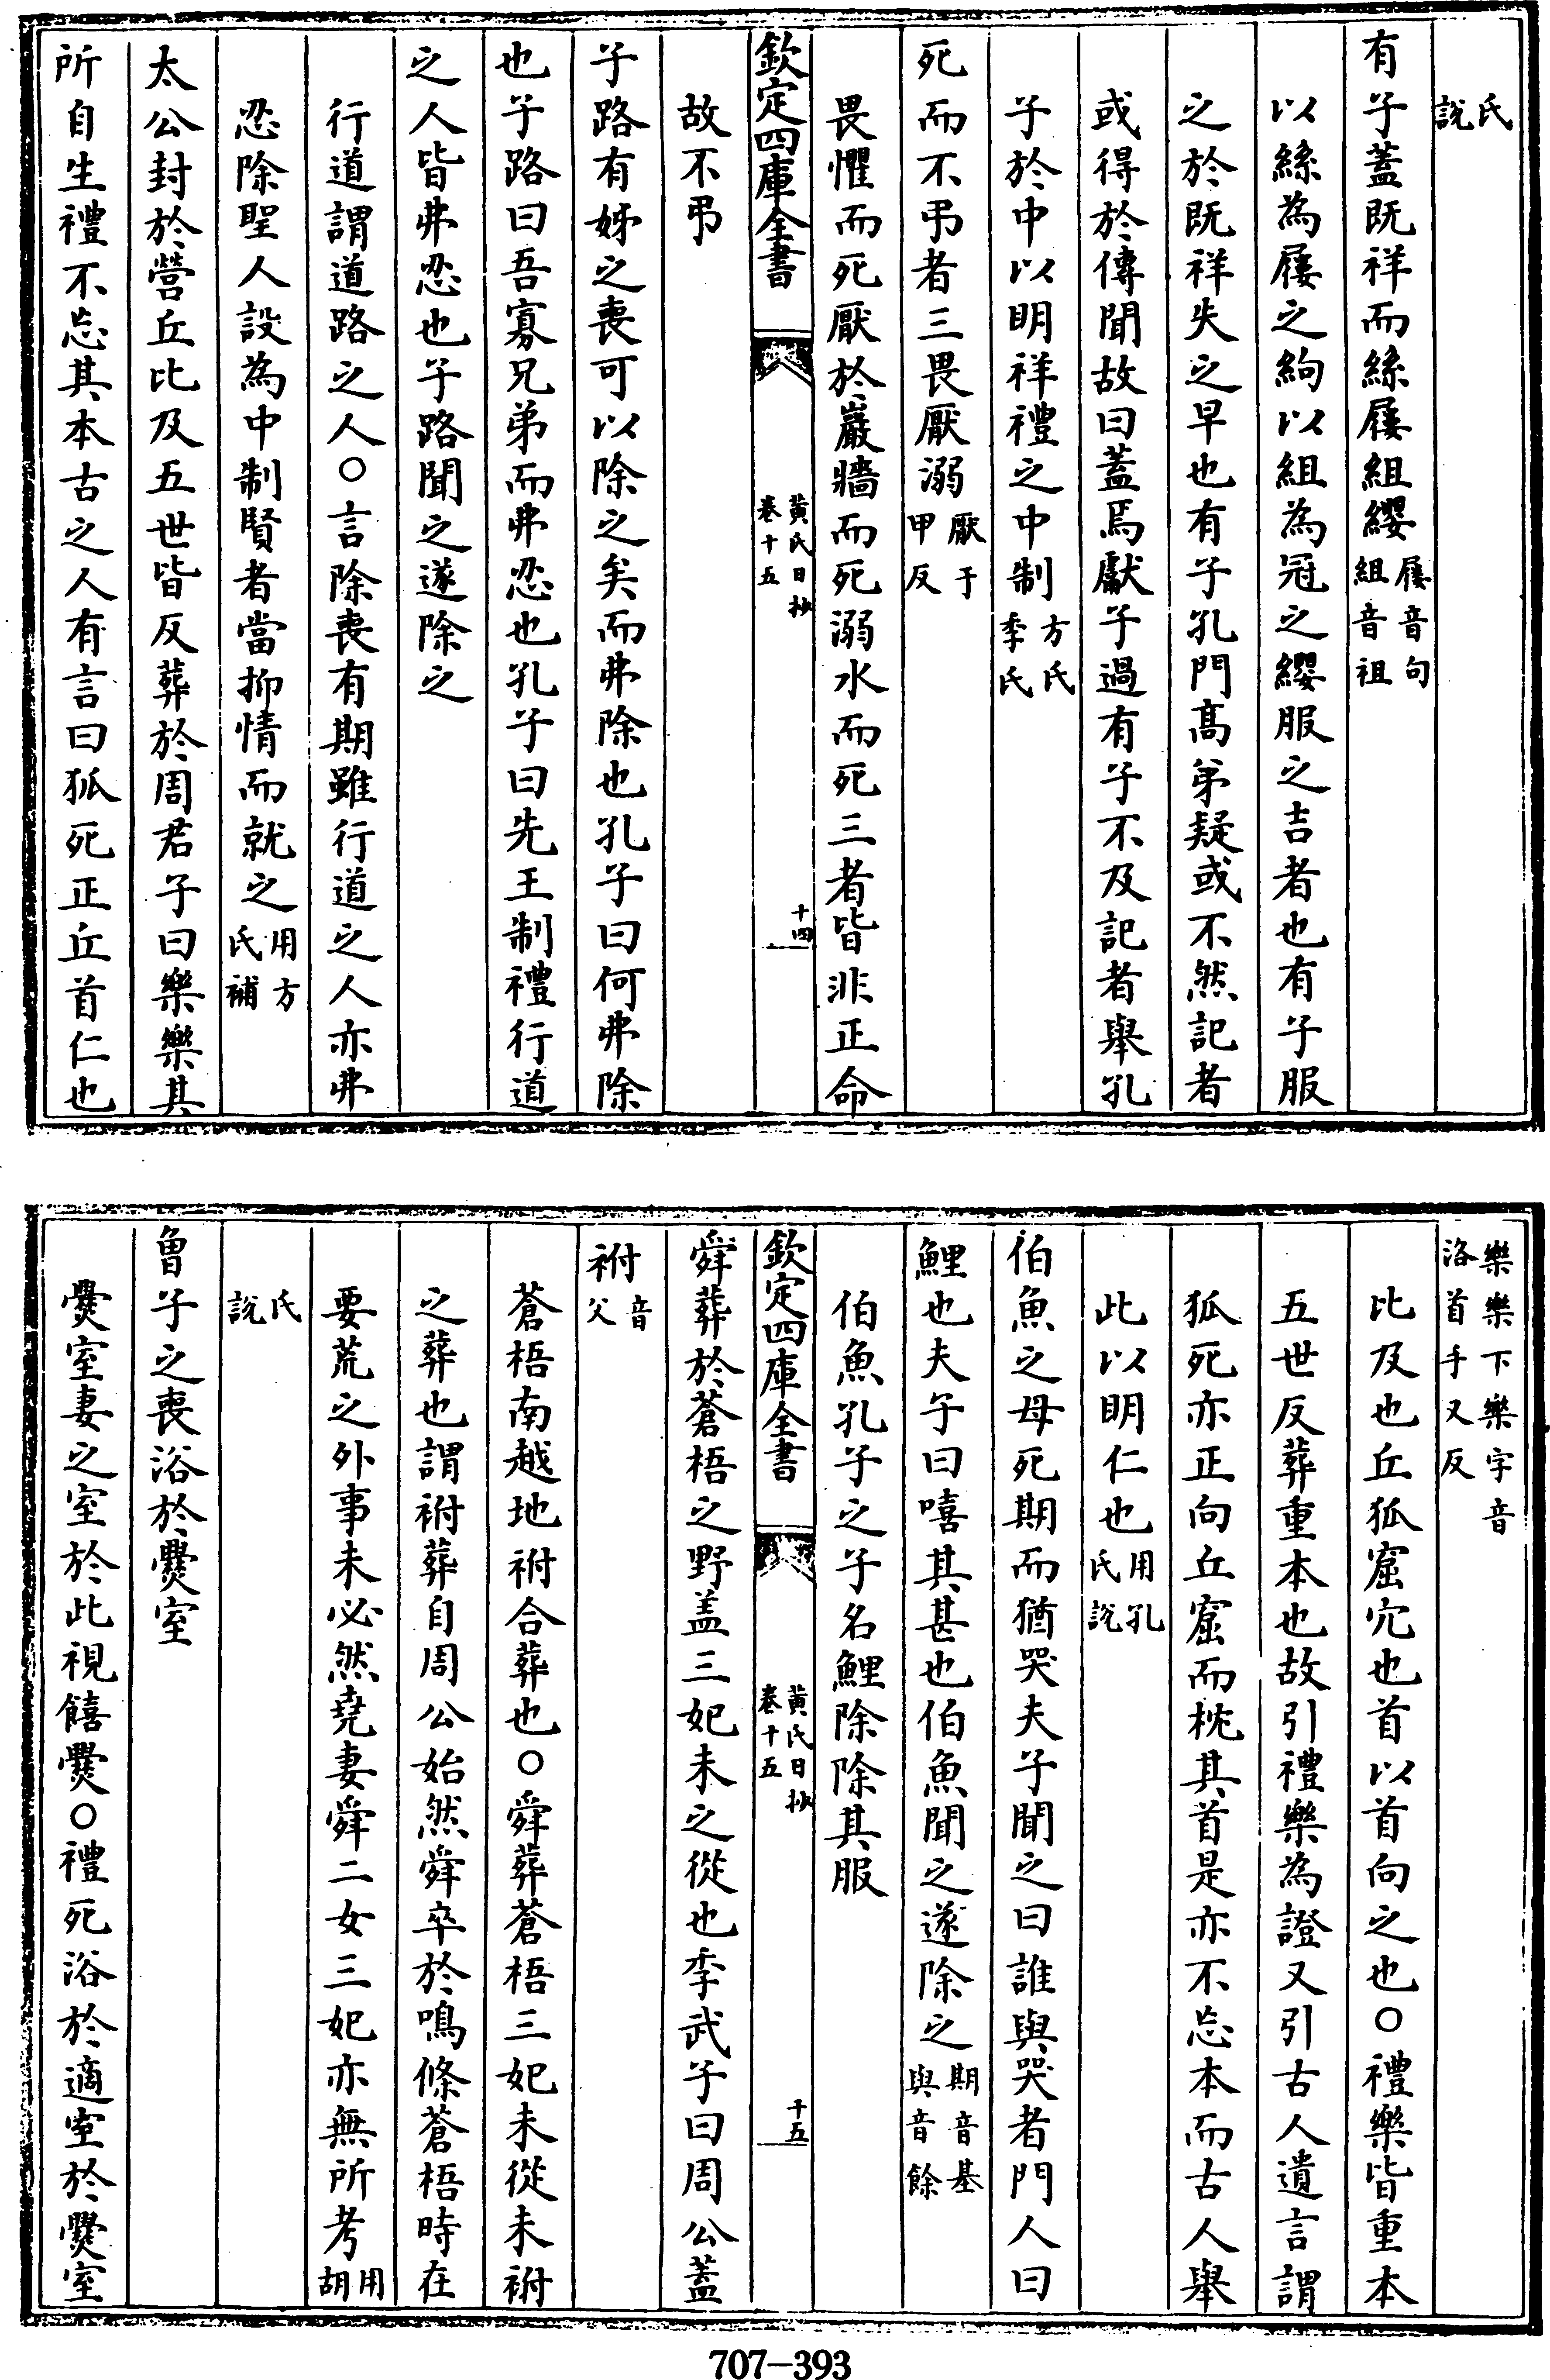 氏
說
有子蓋既祥而絲屨組纓屨音句組音祖
以絲為屨之絇以組為冠之纓服之吉者也有子服
之於既祥失之早也有子孔門高弟疑或不然記者
或得於傳聞故曰蓋焉獻子過有子不及記者舉孔
子於中以明祥禮之中制方氏李氏
死而不弔者三畏厭溺厭于甲反
畏懼而死厭於巖牆而死溺水而死三者皆非正命
欽定四庫全書 黃氏日抄 卷十五 十四
故不弔
子路有姊之喪可以除之矣而弗除也孔子曰何弗除
也子路曰吾寡兄弟而弗忍也孔子曰先王制禮行道
之人皆弗忍也子路聞之遂除之
行道謂道路之人○言除喪有期雖行道之人亦弗
忍除聖人設為中制賢者當抑情而就之用方氏補
太公封於營丘比及五世皆反葬於周君子曰樂樂其
所自生禮不忘其本古之人有言曰狐死正丘首仁也
樂樂下樂字音洛首手又反
比及也丘狐窟穴也首以首向之也○禮樂皆重本
五世反葬重本也故引禮樂為證又引古人遺言謂
狐死亦正向丘窟而枕其首是亦不忘本而古人舉
此以明仁也用孔氏說
伯魚之母死期而猶哭夫子聞之曰誰與哭者門人曰
鯉也夫子曰嘻其甚也伯魚聞之遂除之期音基與音餘
伯魚孔子之子名鯉除除其服
欽定四庫全書 黃氏日抄 卷十五 十五
舜葬於蒼梧之野蓋三妃未之從也季武子曰周公蓋
祔音父
蒼梧南越地祔合葬也○舜葬蒼梧三妃未從未祔
之葬也謂祔葬自周公始然舜卒於鳴條蒼梧時在
要荒之外事未必然堯妻舜二女三妃亦無所考用胡
氏說
曾子之喪浴於爨室
爨室妻之室於此視饎爨○禮死浴於適室於爨室
707-393